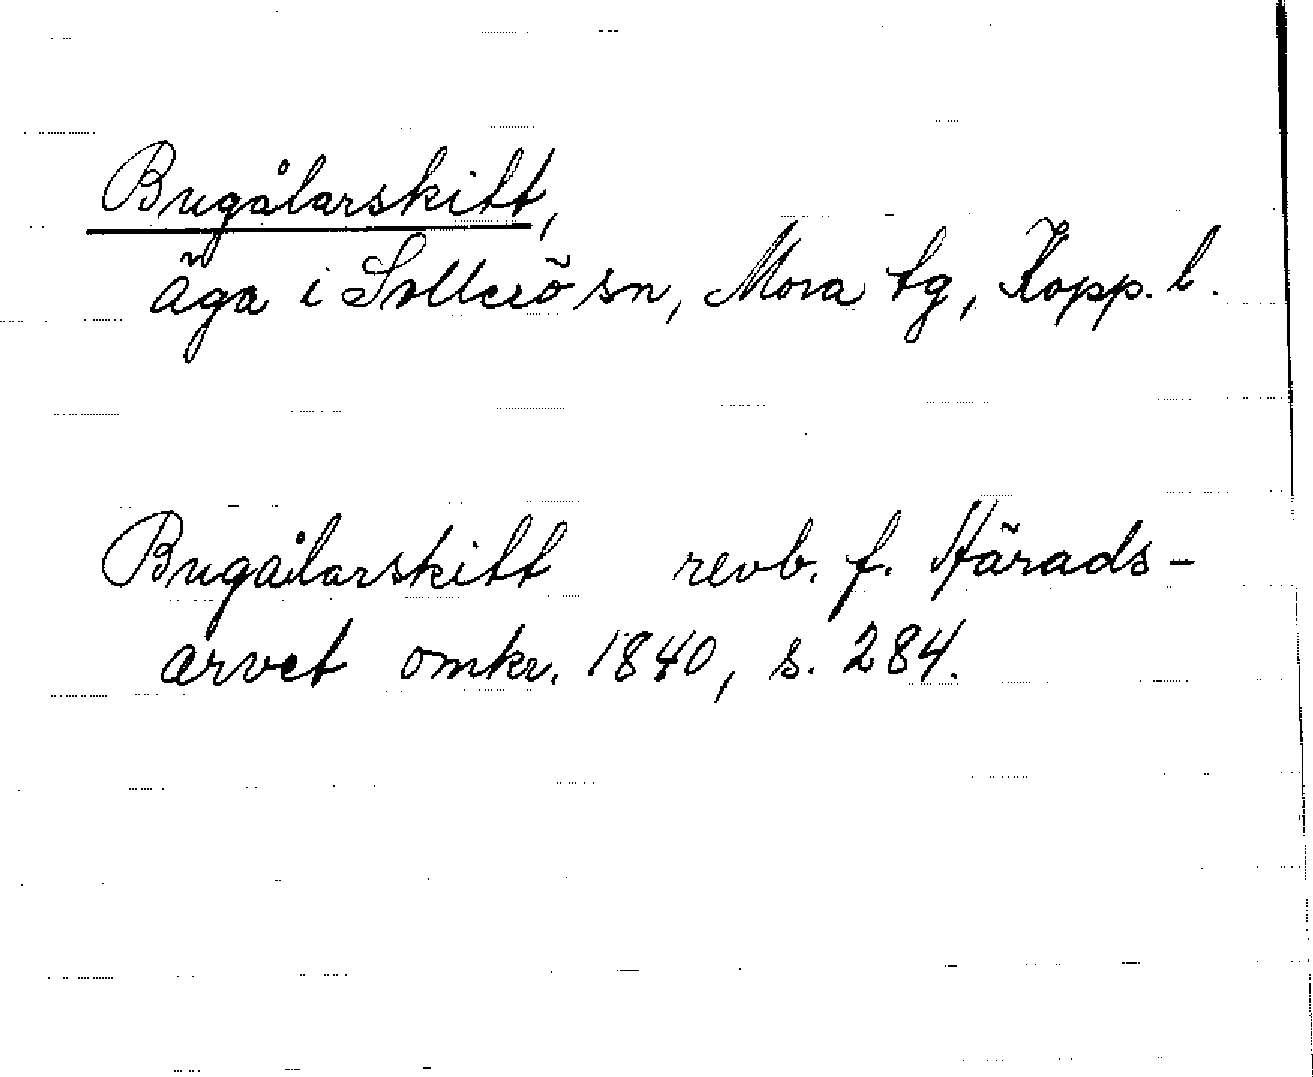 Bugålarskitt,
äga i Sollerö sn, Mora tg, Kopp. l.
Bugålarskitt revb. f. Härads-
arvet omkr. 1840, s. 284.